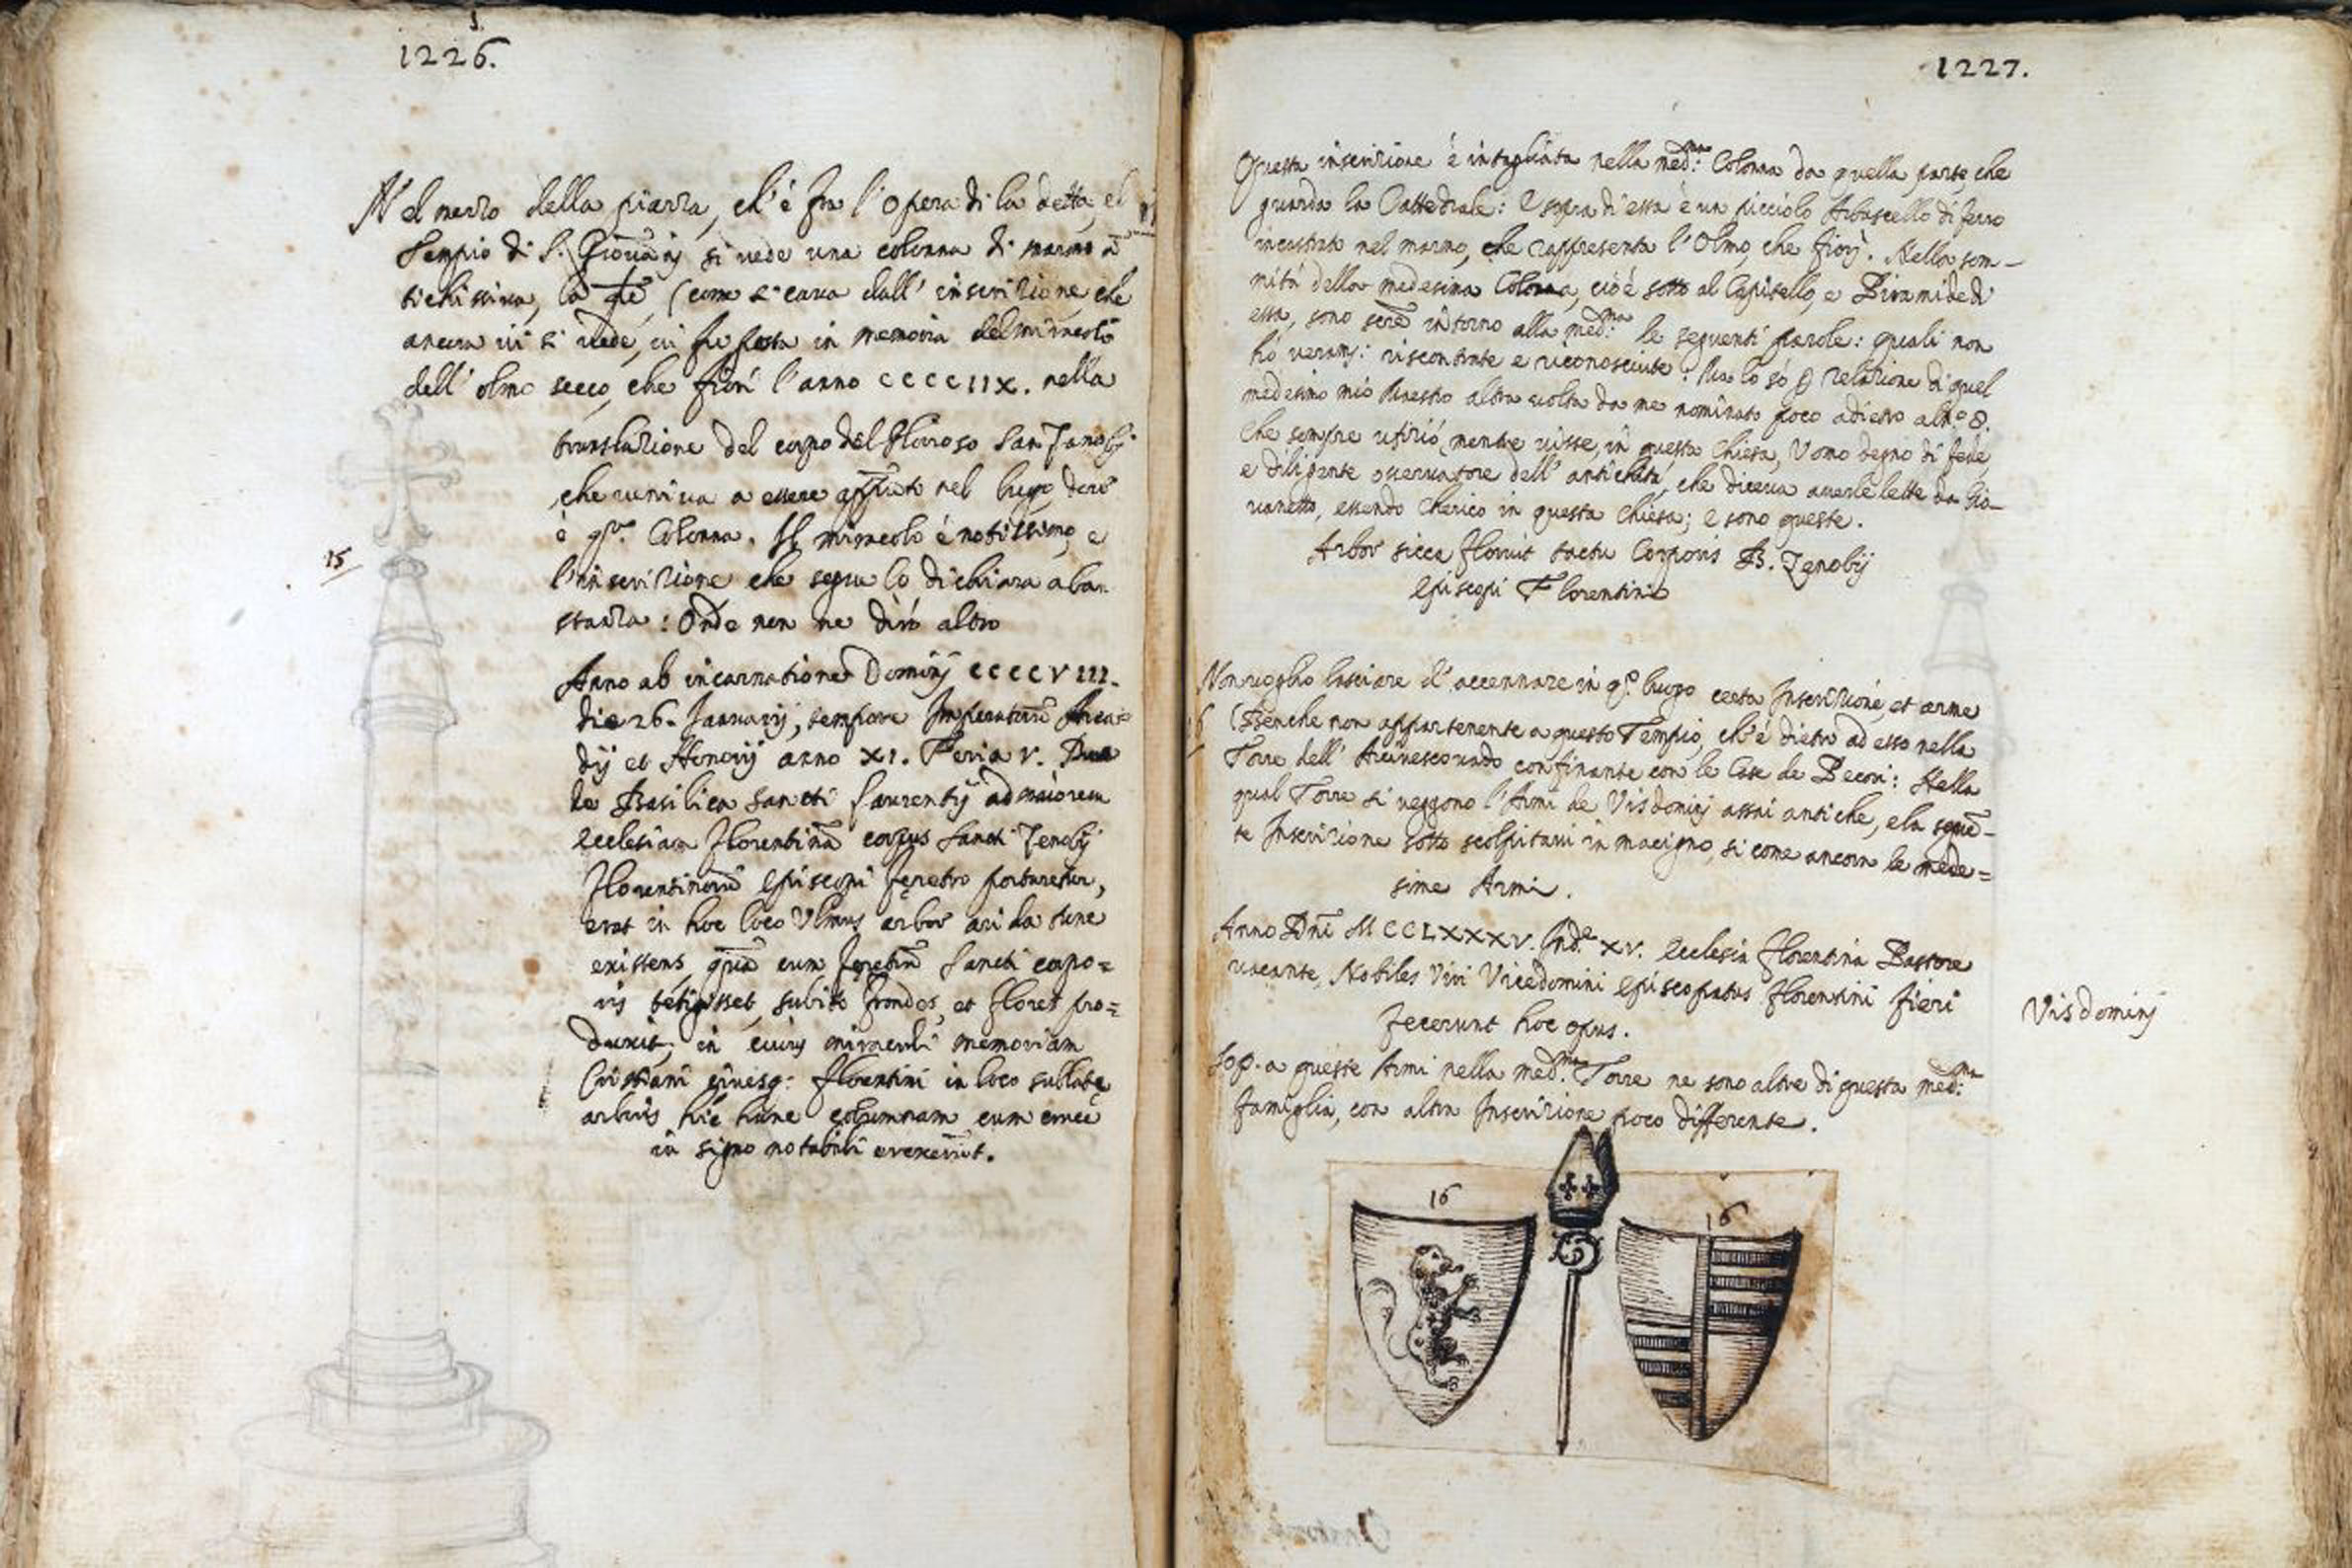 1226.
Nel mezzo della piazza, ch'è fra l'Opera di la detta, el
Tempio di S. Giovanj si vede una colonna di marmo ā
tichissima, la q̄le (come si cava dall' inscrizione, che
ancora ivi si vede, ivi fu posta in memoria del miracolo
dell' olmo secco, che fiorì l'anno CCCCIIX. nella
translazione del corpo del Glorioso San Zanobj
che veniva a essere appūto nel luogo dove
è qta. Colonna. Il miracolo è notissimo, e
15
l'inscrizione che segue lo dichiara aban
stanza: Onde non ne dirò altro
Anno ab incarnatione Dominj CCCCVIII.
die 26. Januarij, tempore Imperatorū Arca=
dij et Honorij anno XI. Feria V. Dum
de Basilica Sancti Laurentij ad maiorem
Ecclesiam Florentinā corpus Sancti Zenobij
Florentinorū Episcopi feretro portaretur,
erat in hoc loco Ulmus arbor arida tunc
existens, quā cum feretrū Sancti corpo=
ris tetigisset, subito frondes, et flores pro=
duxit; in cuius miraculi memoriam
Cristiani civesq: Florentini in loco sublatę
arboris hic hanc columnam cum cruce
in signo notabili erexerūt.
1227.
Questa inscrizione è intagliata nella med:ma Colonna da quella parte, che
guarda la Cattedrale: E sopra di essa è un piccíolo Arbuscello di ferro
incastrato nel marmo, che rappresenta l'Olmo, che fiorì. Nella som-
mità della medesima Colonna, cioè sotto al Capitello, e Piramide di
essa, sono intorno alla med:ma le seguenti parole: quali non
hò veramj: riscontrate e riconosciute: Ma lo sò p relazione di quel
medesimo mio Maestro altra volta da me nominato poco adietro al no. 8.
Che sempre ufiziò, mentre visse, in questa Chiesa, Uomo degno di fede,
e diligente osservatore dell' antichità, che diceva averle lette da Gio-
vanetto, essendo Cherico in questa Chiesa; e sono queste.
Arbor sicca floruit tactu Corporis B. Zenobij
Episcopi Florentini
Non voglio lasciare d'accennare in qo. luogo certa Inscrizione, et arme
16
(Benche non appartenente a questo Tempio, ch'è dietro ad esso nella
Torre dell' Arcivescovado confinante con le Case de Pecori: Nella
qual Torre si veggono l'Armi de Visdominj assai antiche, e la seguē-
te Inscrizione sotto scolpitavi in macigno, si come ancora le mede=
sime Armi.
Anno Dnī MCCLXXXV. Inde. XV. Ecclesia Florentina Pastore
vacante, Nobiles Viri Vicedomini Episcopatus Florentini fieri
fecerunt hoc opus.
Visdominj
Sop.a queste Armi nella med:ma Torre ne sono altre di questa med:ma
famiglia, con altra Inscrizione poco differente.
16
16